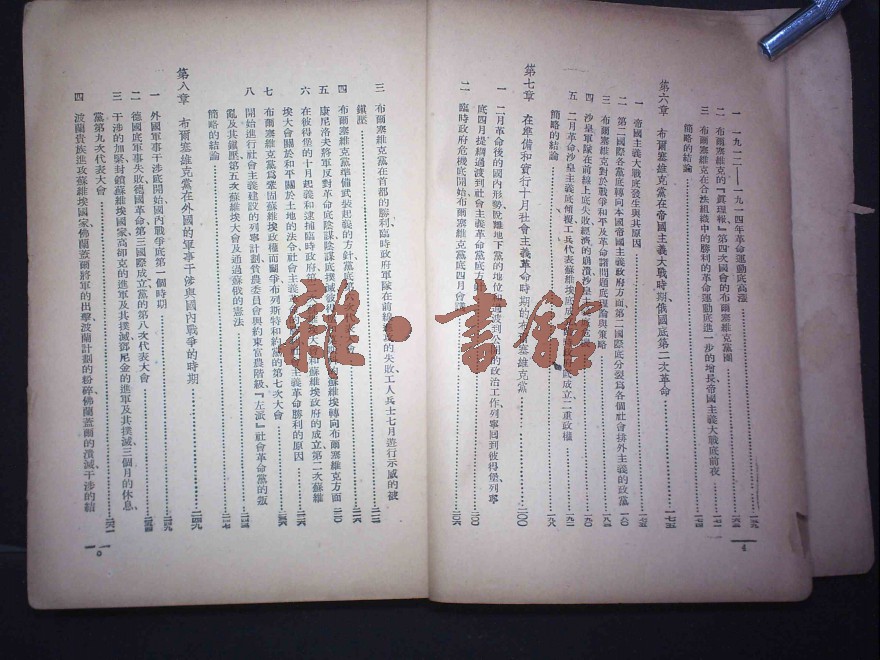 一 一九一二——一九一四年革命運動底高漲
二 布爾塞維克的『眞理報』第四次國會的布爾塞維克黨團
三 布爾塞維克在合法組織中的勝利的革命運動底進一步的增長帝國主義大戰底前夜
簡略的結論
第六章 布爾塞維克黨在帝國主義大戰時期俄國底第二次革命
一 帝國主義大戰底發生與其原因
二 第二國際各黨底轉向本國帝國主義政府方面第二國際底分裂爲各個社會排外主義的政黨
三 布爾塞維克黨對於戰爭和平及革命諸問題底理論與策略
四 沙皇軍隊在前線上底失敗經濟的崩潰沙皇
五 二月革命沙皇主義底傾覆工兵代表蘇維埃底成立二重政權
簡略的結論
第七章 在準備和實行十月社會主義革命時期的布爾塞維克黨
一 二月革命後的國內形勢脫離地下黨的地位和過渡到公開的政治工作列寧回到彼得堡列寧
底四月提綱過渡到社會主義革命黨底方
二 臨時政府危機底開始布爾塞維克黨底四月會議
三 布爾塞維克黨在首都的勝利臨時政府軍隊在前線的失敗工人兵士七月遊行示威的被
鎭壓
四 布爾塞維克黨準備武裝起義的方針黨底第六次
五 康尼洛夫將軍反對革命底陰謀陰謀底撲滅彼得 蘇維埃轉向布爾塞維克方面
六 在彼得堡的十月起義和逮捕臨時政府第二次 大會和蘇維埃政府的成立第二次蘇維
埃大會關於和平關於土地的法令社會主義革命 義革命勝利的原因
七 布爾塞維克黨爲鞏固蘇維埃政權而鬭爭布列斯特和約黨的第七次大會
八 開始進行社會主義建設的列寧計劃貧農委員會與約束富農階級『左派』社會革命黨的叛
亂及其鎭壓第五次蘇維埃大會及通過蘇俄的憲法
簡略的結論
第八章 布爾塞維克黨在外國的軍事干涉與國內戰爭的時期
一 外國軍事干涉底開始國內戰爭底第一個時期
二 德國底軍事失敗德國革命第三國際成立黨的第八次代表大會
三 干涉的加緊封鎖蘇維埃國家高却克的進軍及其撲滅鄧尼金的進軍及其撲滅三個月的休息、
黨第九次代表大會
四 波蘭貴族進攻蘇維埃國家佛蘭蓋爾將軍的出擊波蘭計劃的粉碎佛蘭蓋爾的潰滅干涉的結
雜·書館